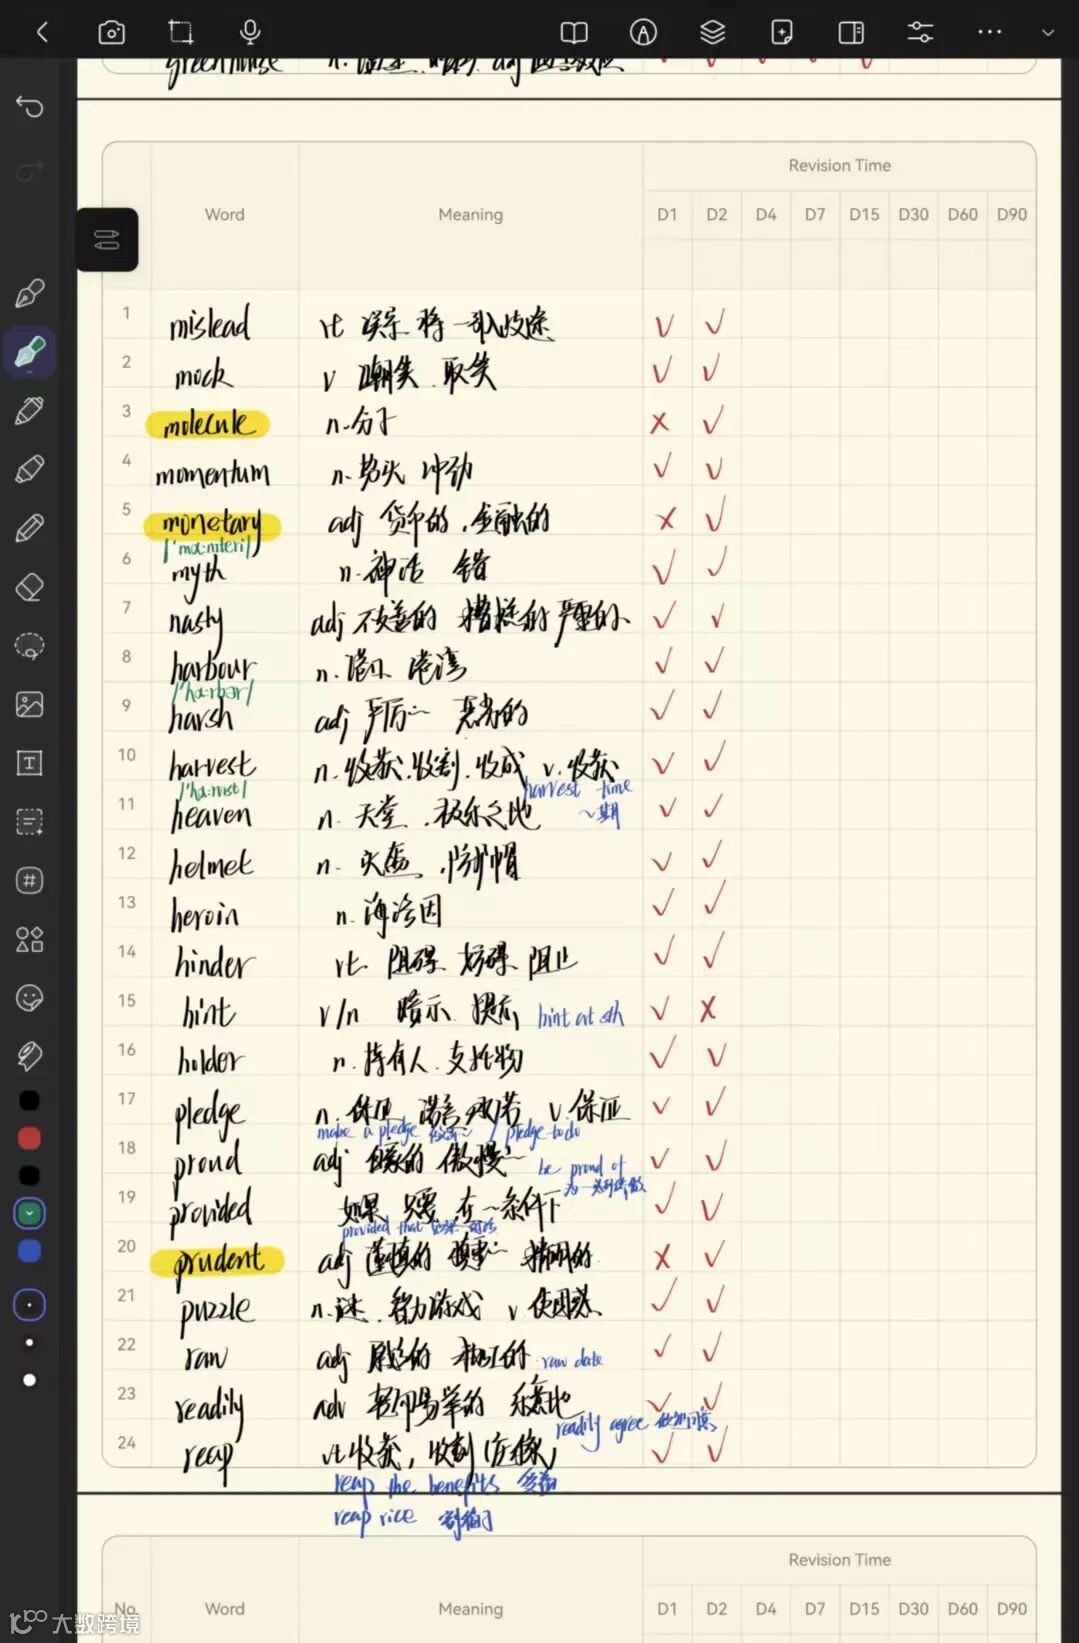 greenhouse n. 温室
Revision Time
Word Meaning D1 D2 D4 D7 D15 D30 D60 D90
1 mislead vt 误导 将…引入歧途 ✓ ✓
2 mock v 嘲笑.取笑 ✓ ✓
3 molecule n.分子 x ✓
4 momentum n.势头 冲劲 ✓ ✓
5 monetary adj 货币的.金融的 x ✓
6 myth n.神话 错 ✓ ✓
7 nasty adj 不友善的 糟糕的 严重的 ✓ ✓
8 harbour n.港口 港湾 ✓ ✓
9 harsh adj 严厉~ 恶劣的 ✓ ✓
10 harvest n.收获.收割.收成 v.收获 ✓ ✓
harvest time
~期
11 heaven n. 天堂.极乐之地 ✓ ✓
12 helmet n. 头盔.防护帽 ✓ ✓
13 heroin n.海洛因 ✓ ✓
14 hinder vt 阻碍 妨碍 阻止 ✓ ✓
15 hint v/n 暗示 提示 hint at sth ✓ x
16 holder n.持有人.支托物 ✓ ✓
17 pledge n.保证 诺言 承诺 v.保证 ✓ ✓
make a pledge / pledge to do
18 proud adj 自豪的 傲慢~ be proud of ✓ ✓
19 provided 如果 只要 在~条件下 ✓ ✓
provided that
20 prudent adj 谨慎的 慎重~ 精明的 x ✓
21 puzzle n.谜.智力游戏 v.使困惑 ✓ ✓
22 raw adj 原始的 raw date ✓ ✓
23 readily adv 轻而易举的 乐意地 ✓ ✓
readily agree
24 reap vt 收获,收割(庄稼) ✓ ✓
reap the benefits 受益
reap rice 割稻子
Revision Time
No. Word Meaning D1 D2 D4 D7 D15 D30 D60 D90
大数跨境